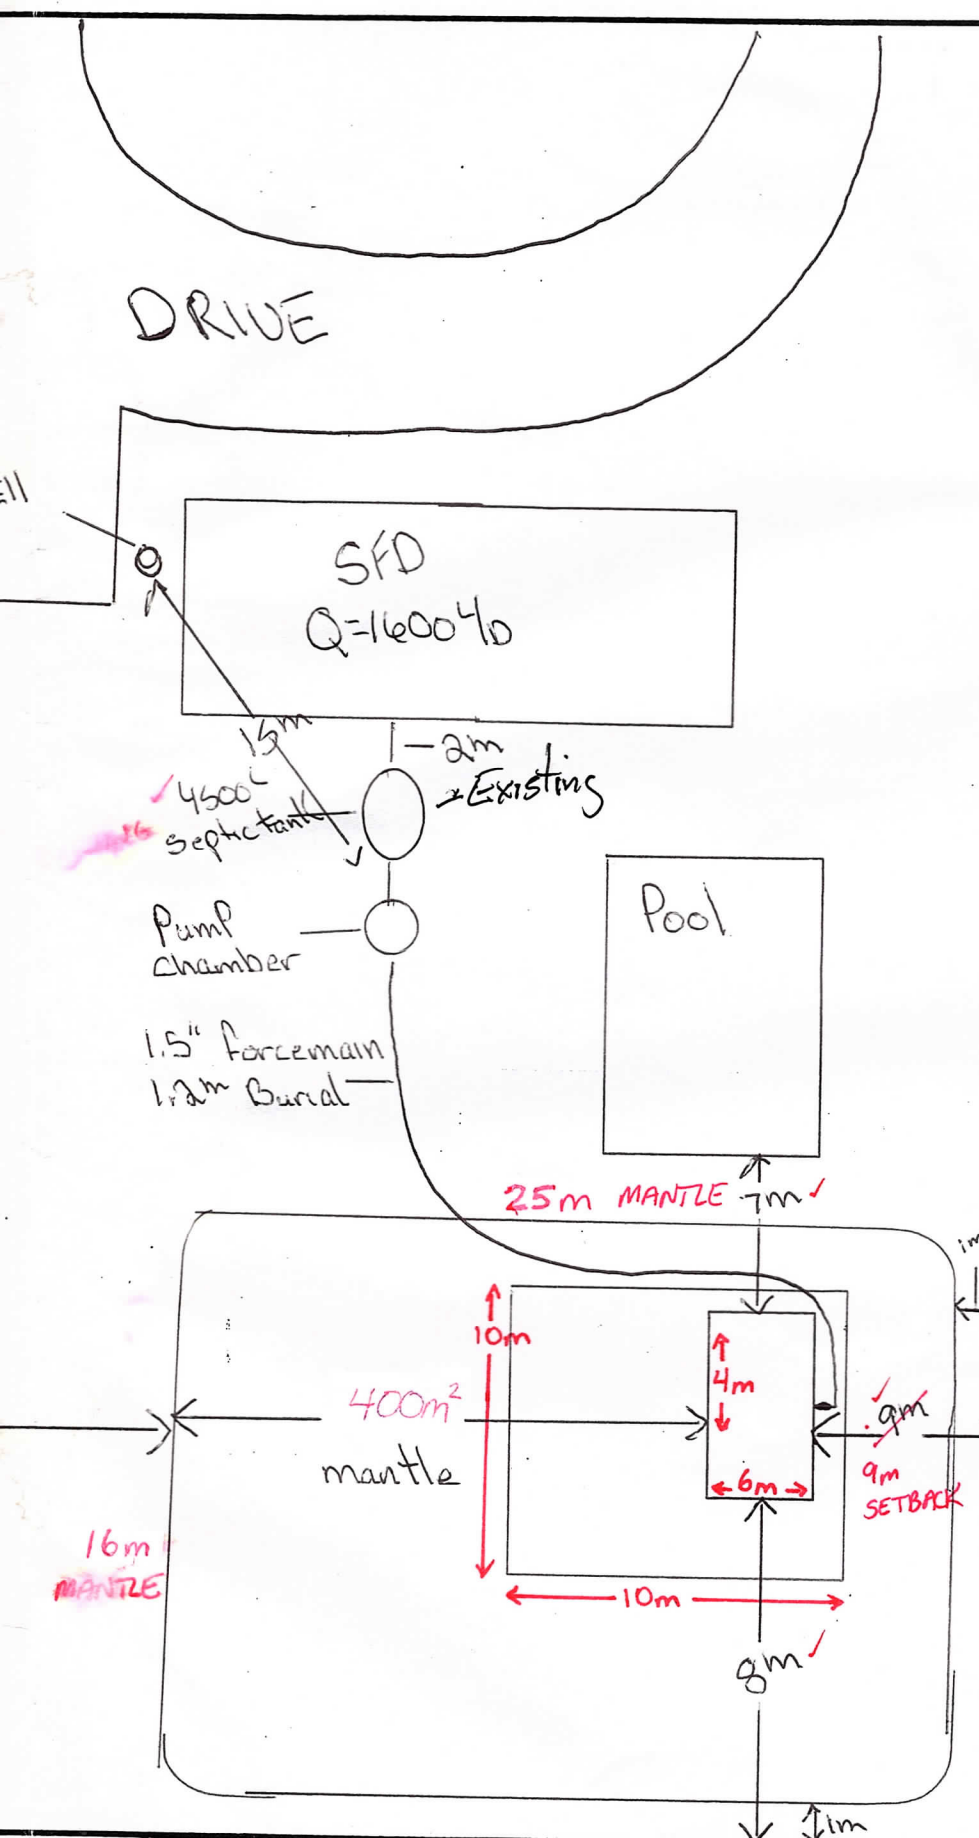 DRIVE
ell
SFD
Q=1600 L/D
15m
2m
Existing
4500L
septic tank
Pump
chamber
Pool
1.5" forcemain
1.2m Burial
25m MANTLE
7m
1m
10m
4m
400m²
mantle
9m
6m
9m
SETBACK
16m
MANTLE
10m
8m
1m